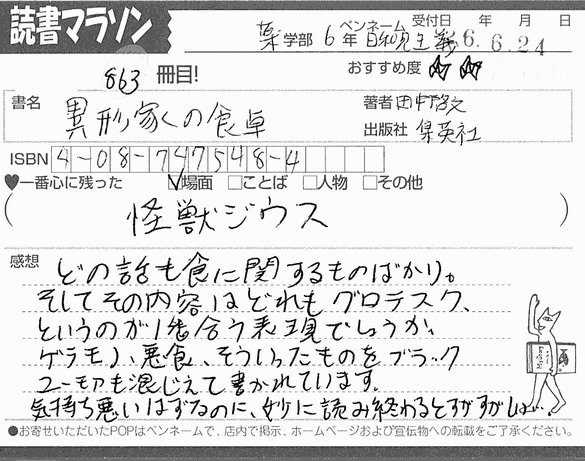 読書マラソン
ペンネーム 受付日 年 月 日
薬学部 6年 日和見主義 6.6.24
863冊目! おすすめ度 ☆☆
書名 異形家の食卓
著者 田中啓文
出版社 集英社
ISBN 4-08-747548-4
♥一番心に残った ☑場面 □ことば □人物 □その他
(怪獣ジウス)
感想 どの話も食に関するものばかり。
そしてその内容はどれもグロテスク、
というのが1番合う表現でしょうか。
ゲテモノ、悪食、そういったものをブラック
ユーモアも混じえて書かれています。
気持ち悪いはずなのに、妙に読み終わるとすがすがしい…
●お寄せいただいたPOPはペンネームで、店内で掲示、ホームページおよび宣伝物への転載をご了承ください。